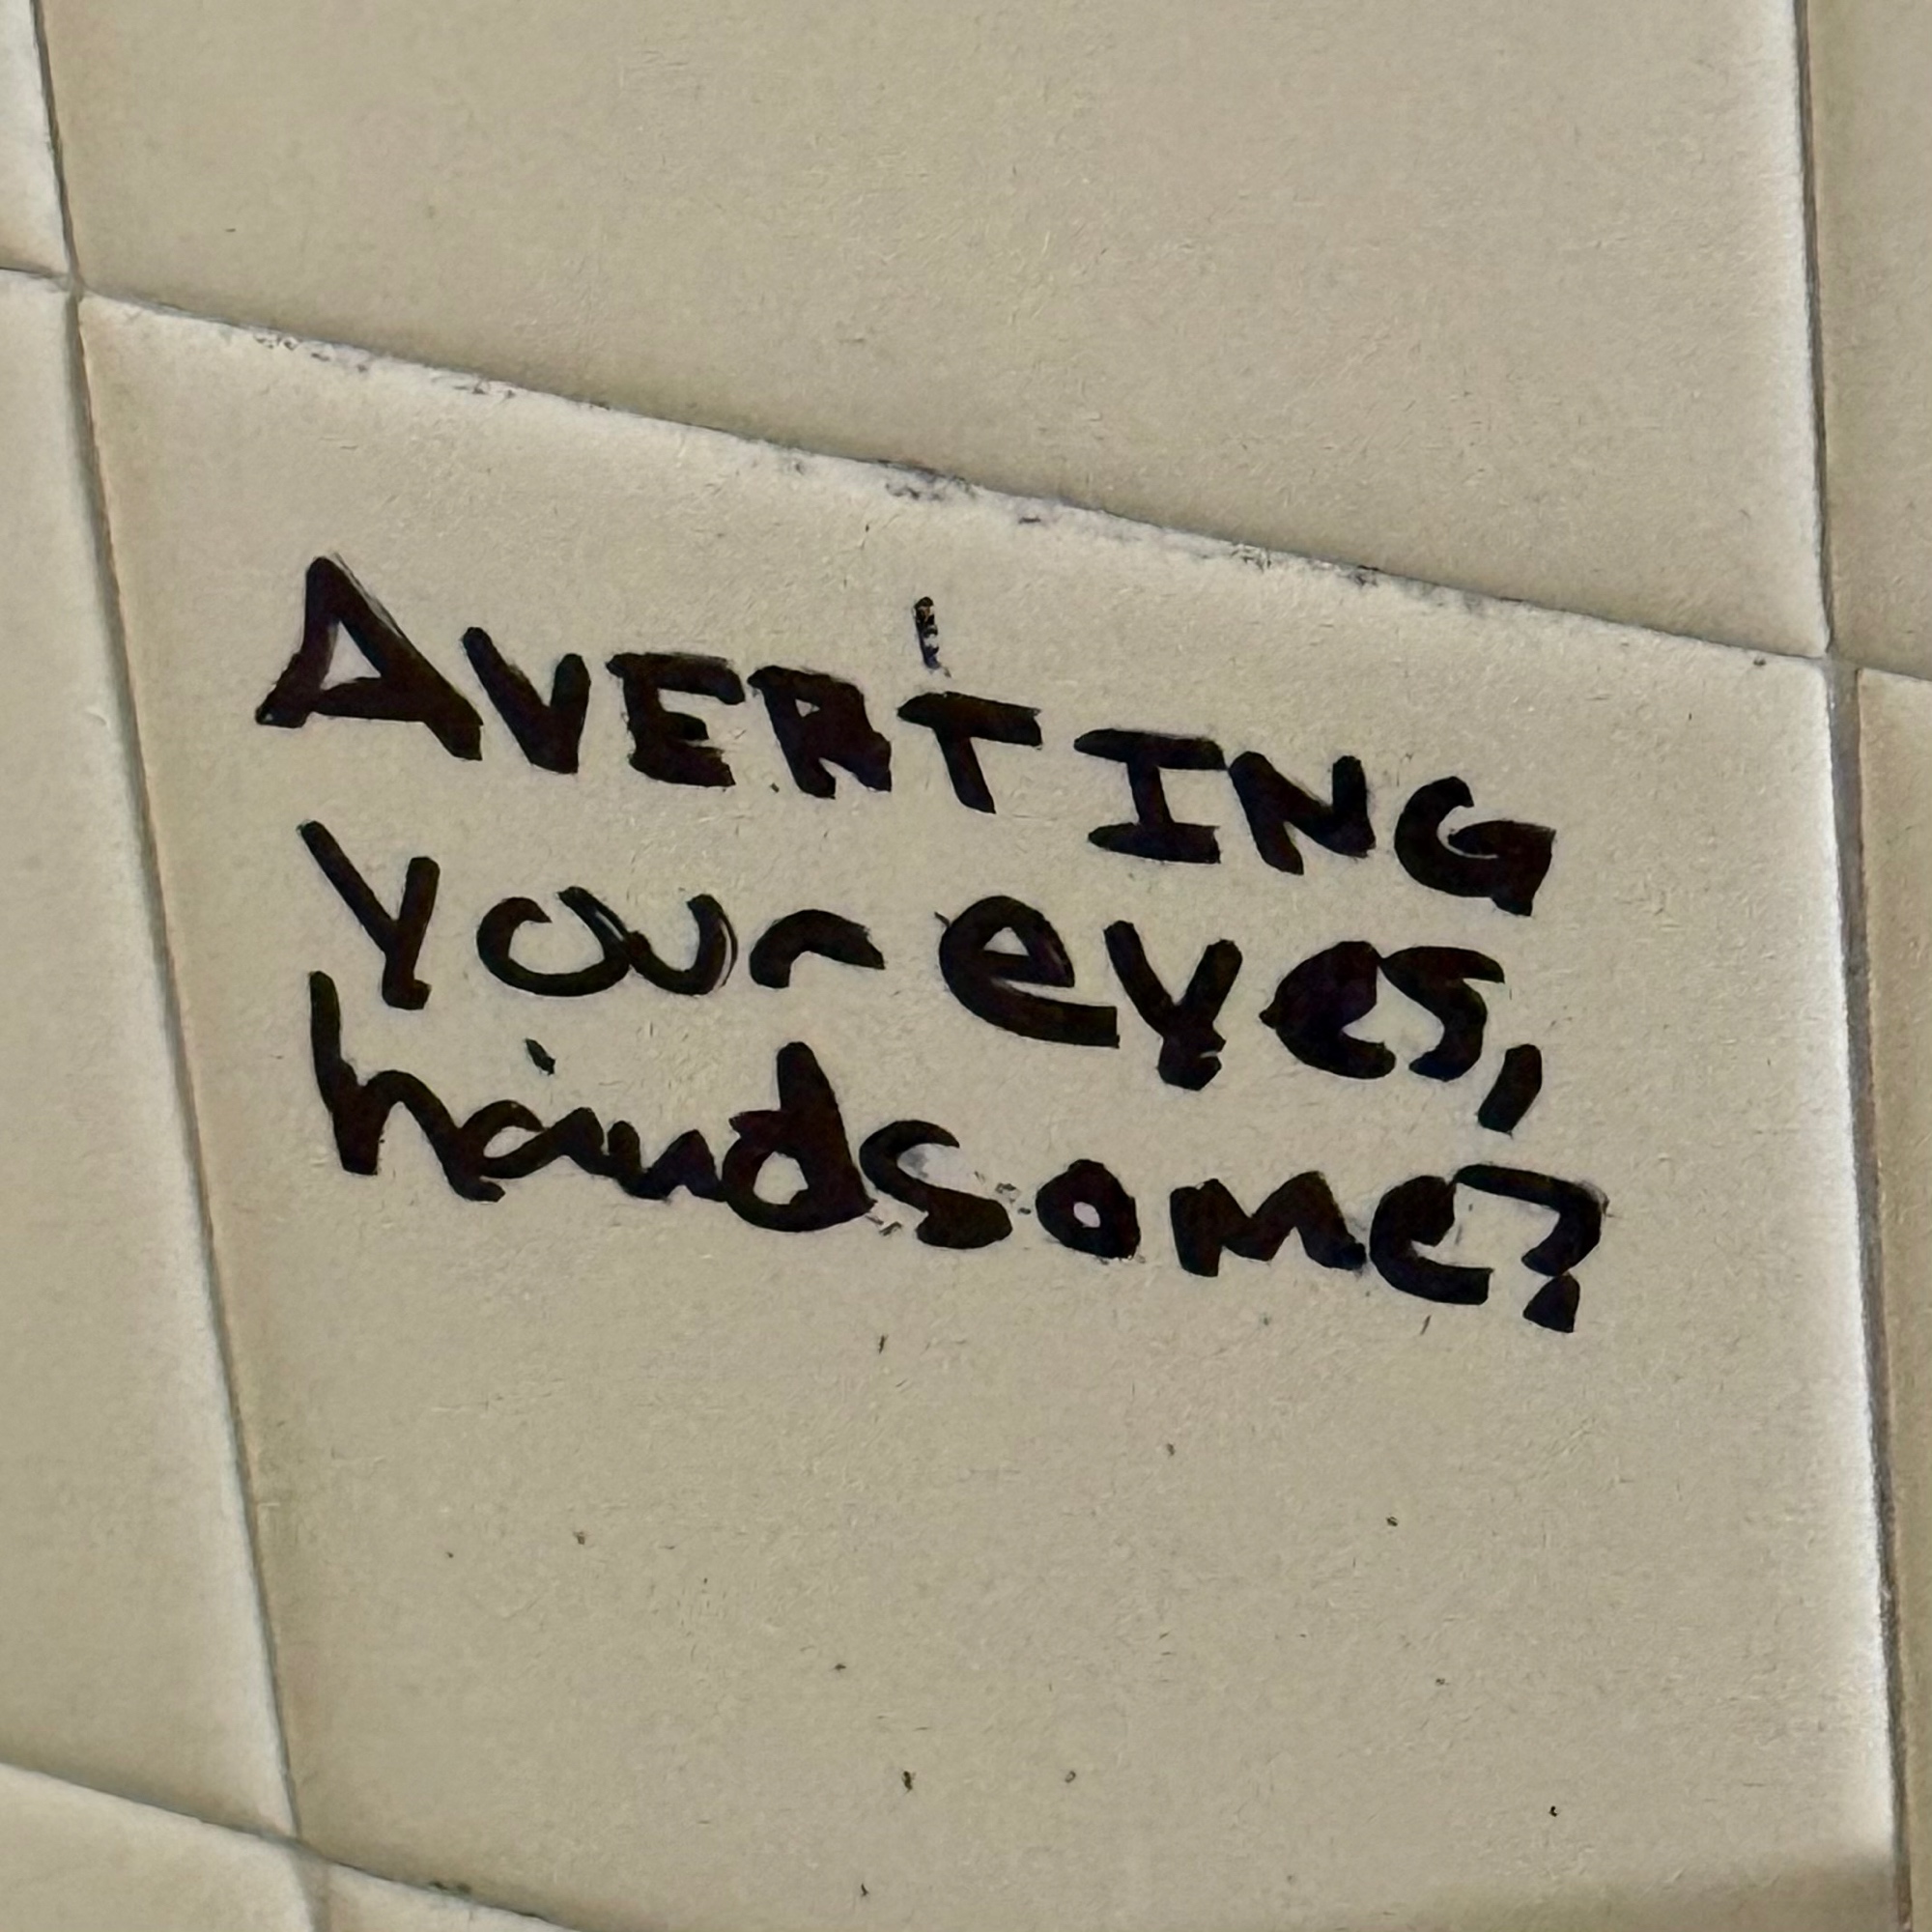 AVERTING
your eyes,
handsome?